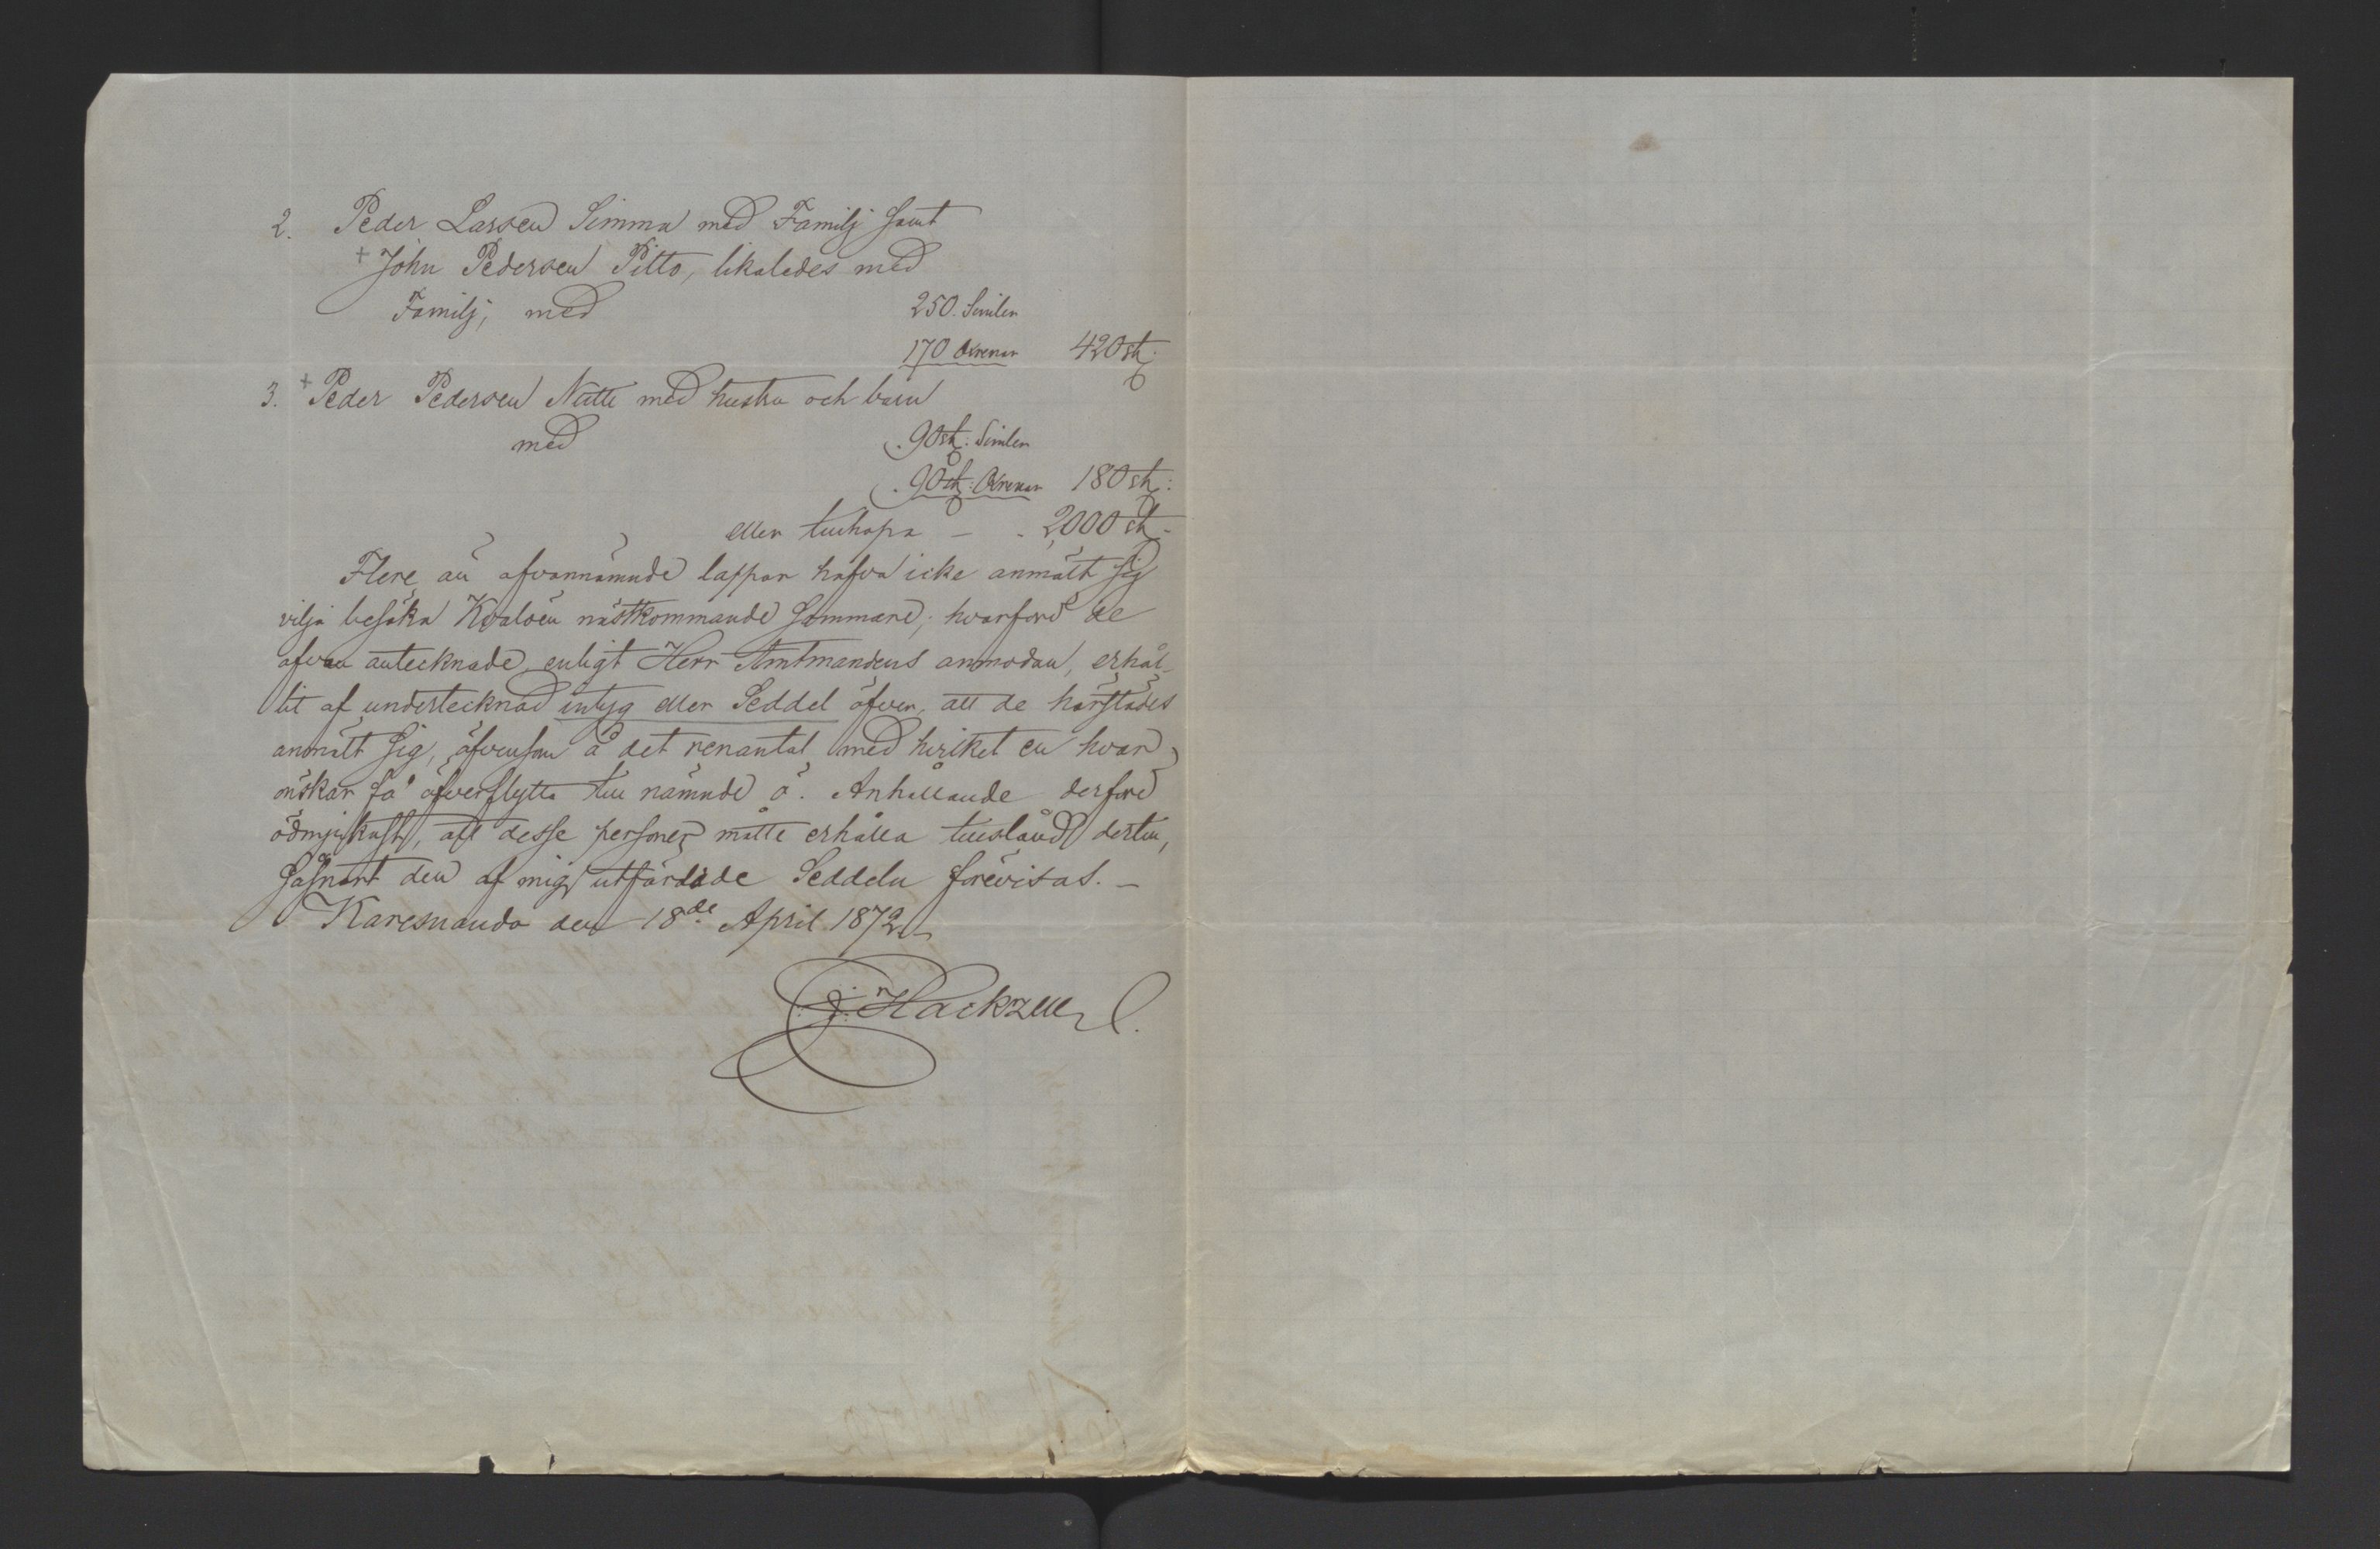 2. Peder Larsen Simma med Familj samt
+ John Pedersen Pitto, likaledes med
Familj, med 250. Simlor
170 Oxrenar 420 st:
3. + Peder Pedersen Nutti med hustru och barn
med 90 st: Simlor
90 st: Oxrenar 180 st:
eller tillhopa – - 2,000 st -
Flere än ofvannämnde lappar hafva icke anmält sig
vilja besöka Kvalöen nästkommande sommar; hvarföre de
ofvan antecknade, enligt Herr Amtmandens anmodan, erhål-
lit af undertecknad intyg eller Seddel öfver, att de härstädes
anmält sig, äfvensom å det renantal, med hvilket en hvar
önskar få öfverflytta till nämnde ö. Anhållande derföre
ödmjukast, att desse personer måtte erhålla tillstånd dertill,
såsnart den af mig utfärdade Seddeln förevisas. –
Karesuando den 18de April 1872.
J. Hackzell.